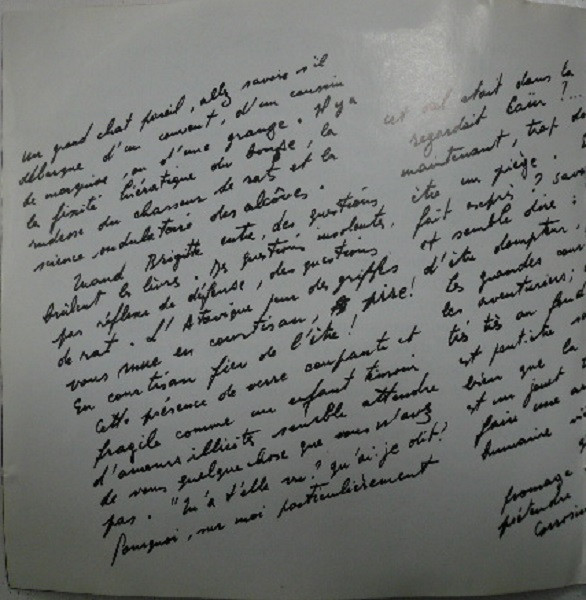 un grand chat pareil, allez savoir s'il
débarque d'un couvent, d'un coussin
de marquise, ou d'une grange. Il y a
la fixité hiératique du bonze, la
rudesse du chasseur de rat, et la
science ondulatoire des alcôves.
Quand Brigitte entre, des questions
brûlent les livres. Des questions insolentes,
pas réflexe de défense, des questions
de rat. L'Atavique peur des griffes
vous mue en courtisan, pire!
En courtisan fier de l'être!
Cette présence de verre coupante et
fragile comme un enfant témoin
d'amours illicites semble attendre
de vous quelque chose que vous n'avez
pas. "Qu'a t'elle vu? qu'ai-je dit?
Pourquoi, sur moi particulièrement
était dans la
regardait
maintenant, trop
être un piège.
fait exprès?
et semble dire :
d'être dompteur,
les grandes
les aventuriers;
très très au
est peut-être
bien que la
est un jouet
flaire une
humaine
fromage
prétendre